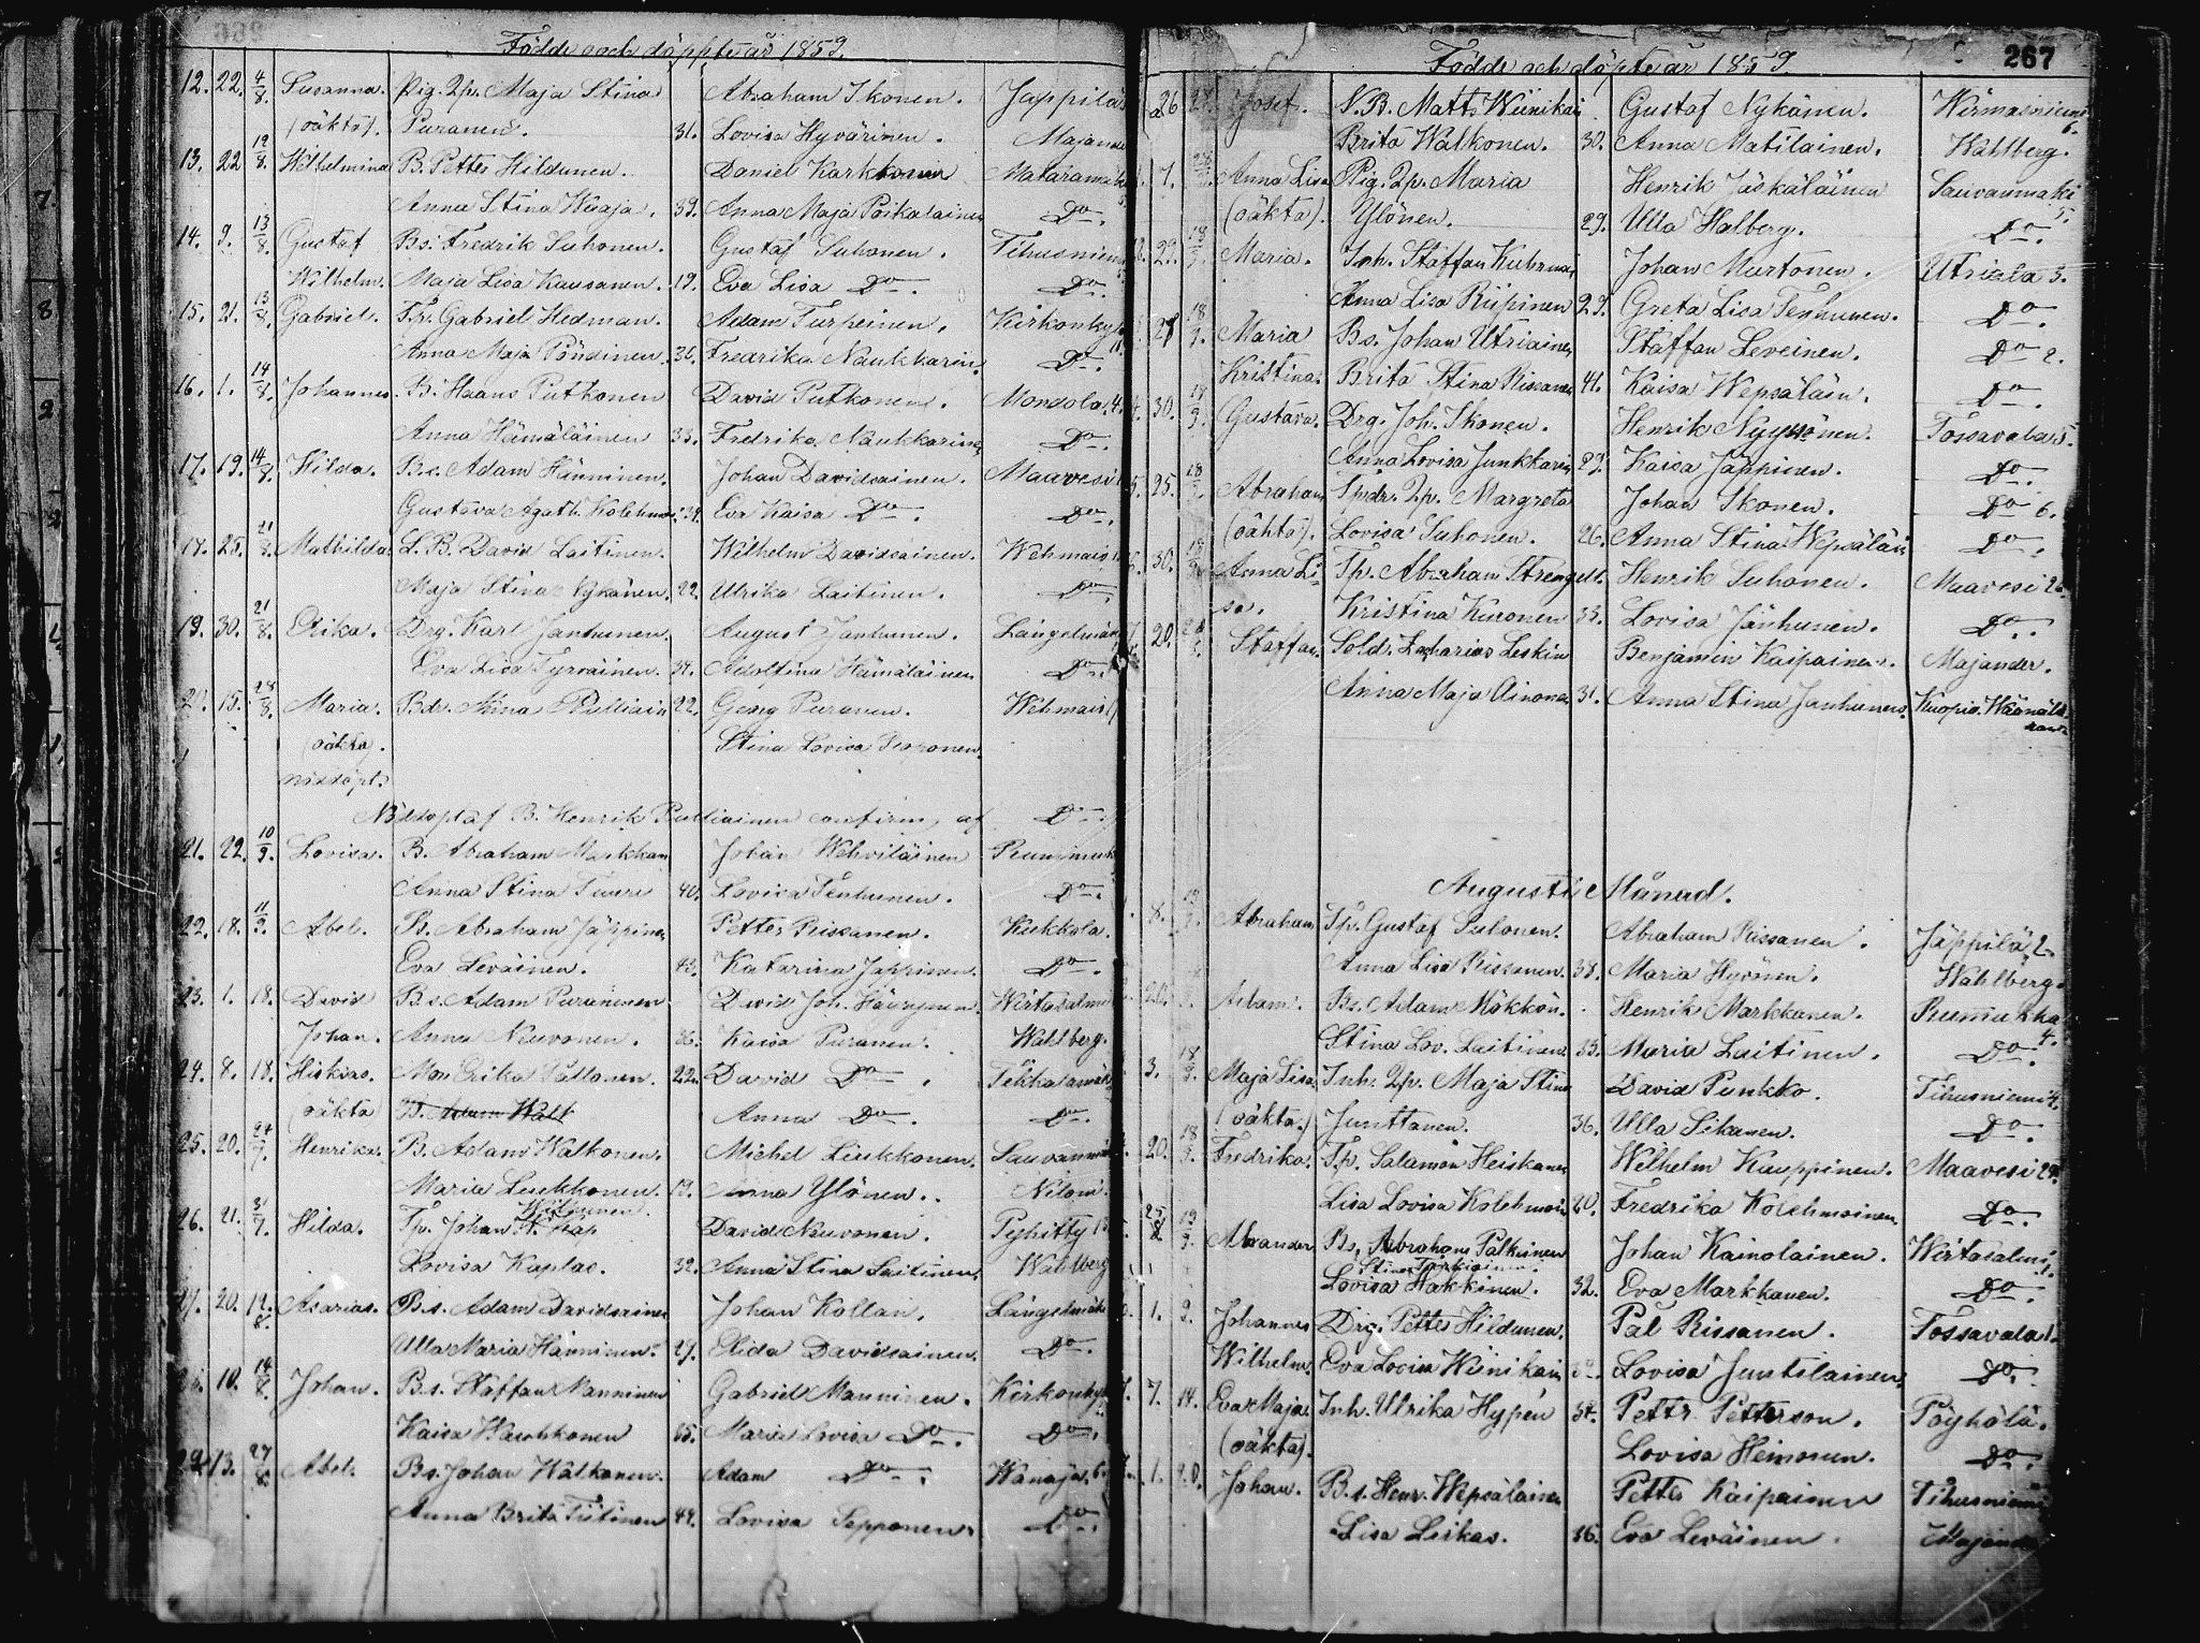 Födde och döpte år 1859.
12. 22. 4/8. Susanna. Pig. Qp. Maja Stina Abraham Ikonen. Jäppilä
(oäkta). Puranen. 31. Lovisa Hyvärinen. Majander
13. 22 12/8. Wilhelmina B. Petter Hildunen. Daniel Karkkonen Mataramäki
Anna Stina Waaja. 39. Anna Maja Poikalainen Do.
14. 9. 13/8. Gustaf Bs. Fredrik Suhonen. Gustaf Suhonen. Tihusniemi
Wilhelm. Maja Lisa Kausanen. 19. Eva Lisa Do. Do.
15. 21. 13/8. Gabriel. Tp. Gabriel Hedman. Adam Turpeinen. Kirkonky
Anna Maja Pöndinen. 36. Fredrika Naukkarin. Do.
16. 1. 14/8. Johannes. B. Haans Putkonen David Putkonen. Mongola. 4.
Anna Hämäläinen 33. Fredrika Naukkarinen Do
17. 19. 14/8. Hilda. Bs. Adam Hänninen. Johan Davidsainen. Maavesi
Gustava Agath. Kolehma. 39. Eva Kaisa Do. Do.
25. 21/8. Mathilda L. B. David Laitinen. Wilhelm Davidsainen. Wehmais
Maja Stina Nykänen. 22. Ulrika Laitinen. Do.
19. 30. 21/8. Erika. Drg. Karl Janhunen. August Janhunen. Längelmäki
Eva Lisa Tyrväinen. 37. Adolfina Hämäläinen Do.
20. 15. 28/8. Maria. Bdr. Anna Pulliain 22. Georg Puranen. Wehmais
(oäkta). Stina Lovisa Kopponen.
nöddöpt.
Nöddöpt af B. Henrik Pulliainen confirm. af Do.
21. 22. 10/9. Lovisa. B. Abraham Markkan Johan Wehviläinen
Anna Stina Tuure 40. Lovisa Tenhunen. Do.
22. 18. 11/9. Abel. B. Abraham Jäppinen Petter Rissanen. Kukkola.
Eva Leväinen. 43. Katarina Jäppinen. Do.
23. 1. 18. David Bs. Adam Puranenen David Joh. Häyrynen. Wirtasalmi
Johan. Anna Nuvonen. 36. Kaisa Puranen. Wahlberg.
24. 8. 18. Hiskias. Mon Erika Pällonen. 22. David Do. Tekkalamäki
(oäkta) B. Adam Walk Anna Do. Do.
25. 20. 24/7. Henrika. B. Adam Walkonen. Michel Liukkonen. Sauvanmäki
Maria Liukkonen. 19. Anna Ylönen. Nilom.
26. 21. 31/7. Hilda. Tp. Johan David Nuvonen. Pyhitty
Lovisa Kaplas. 32. Anna Stina Laitinen. Wahlberg
27. 20. 12/8. Asarias. Bs. Adam Davidsainen Johan Kollan. Längelmäki
Ulla Maria Hänninen. 29. Elida Davidsainen. Do.
10. 14/8. Johan. Bs. Staffan Manninen Gabriel Manninen. Kirkonky
Kaisa Haukkonen 35. Maria Lovisa Do. Do.
29. 13. 27/8. Abel. Bs. Johan Walkonen. Adam Do. Wanaja. 6.
Anna Brita Tiitinen 44. Lovisa Sepponen. Do.
267
Födde och döpte år 1859.
26 Josef. N. B. Matts Wiinikai. Gustaf Nykänen. Wirmasniemi 6.
Brita Walkonen. 30. Anna Matilainen. Wahlberg.
7. Anna Lisa Pig. Qp. Maria Henrik Jäskäläinen Sauvanmäki 5.
(oäkta). Ylönen. 29. Ulla Halberg. Do.
29. 18/9. Maria. Inh. Staffan Kuhmon Johan Murtonen. Utriala 3.
Anna Lisa Riipinen 29. Greta Lisa Tenhunen. Do.
28 18/9. Maria Bs. Johan Utriainen Staffan Leveinen. Do 2.
Kristina. Brita Stina Rissanen 41. Kaisa Wepsäläin. Do.
30. 18/9. Gustava. Drg. Joh. Ikonen. Henrik Nyyssönen. Tossavala 5.
Anna Lovisa Junkkarin 29. Kaisa Jäppinen. Do.
25. 18/9. Abraham Spdr. Qp. Margreta Johan Ikonen. Do 6.
(oäkta). Lovisa Suhonen. 26. Anna Stina Wepsäläin Do.
30. 18/9. Anna Li- Tp. Abraham Strengelt. Henrik Suhonen. Maavesi 26.
sa. Kristina Kuronen 33. Lovisa Jänhunen. Do.
20. Staffan. Sold. Zacharias Leskin Benjamin Kaipainen. Majander.
Anna Maja Ainonen 31. Anna Stina Janhunen. Kuopio.
Augusti Månad.
8. Abraham Tp. Gustaf Suhonen. Abraham Rissanen. Jäppilä 2.
Anna Lisa Rissanen. 38. Maria Hyvönen. Wahlberg.
Adam. Bs. Adam Mökkön. Henrik Markkanen. 4.
Stina Lov. Laitinen. 33. Maria Laitinen. Do.
3. 18/9. Maja Lisa Inh. Qp. Maja Stina David Punkko. Tihusniemi 4.
(oäkta.) Junttanen. 36. Ulla Sikanen. Do.
20. 18/9. Fredrika. Tp. Salamon Heiskanen Wilhelm Kauppinen. Maavesi 29.
Lisa Lovisa Kolehmain 20. Fredrika Kolehmainen Do.
25/8. Alexander Bs. Abraham Pulkkinen Johan Kainolainen. Wirtasalmi
Lovisa Hakkinen. 32. Eva Markkanen. Do.
1. 9. Johannes Drg. Petter Hildunen. Pål Rissanen. Tossavala 1.
Wilhelm. Eva Lovisa Wiinikain Lovisa Juntilainen. Do.
7. 14. Eva Maja Inh. Ulrika Hyppén 34. Pettr Petterson. Pöyhölä.
(oäkta). Lovisa Heinonen. Do.
1. 20. Johan. Bs. Henr. Wepsäläinen Petter Kaipainen Tihusniemi
Lisa Leikas. 36. Eva Leväinen. Majander